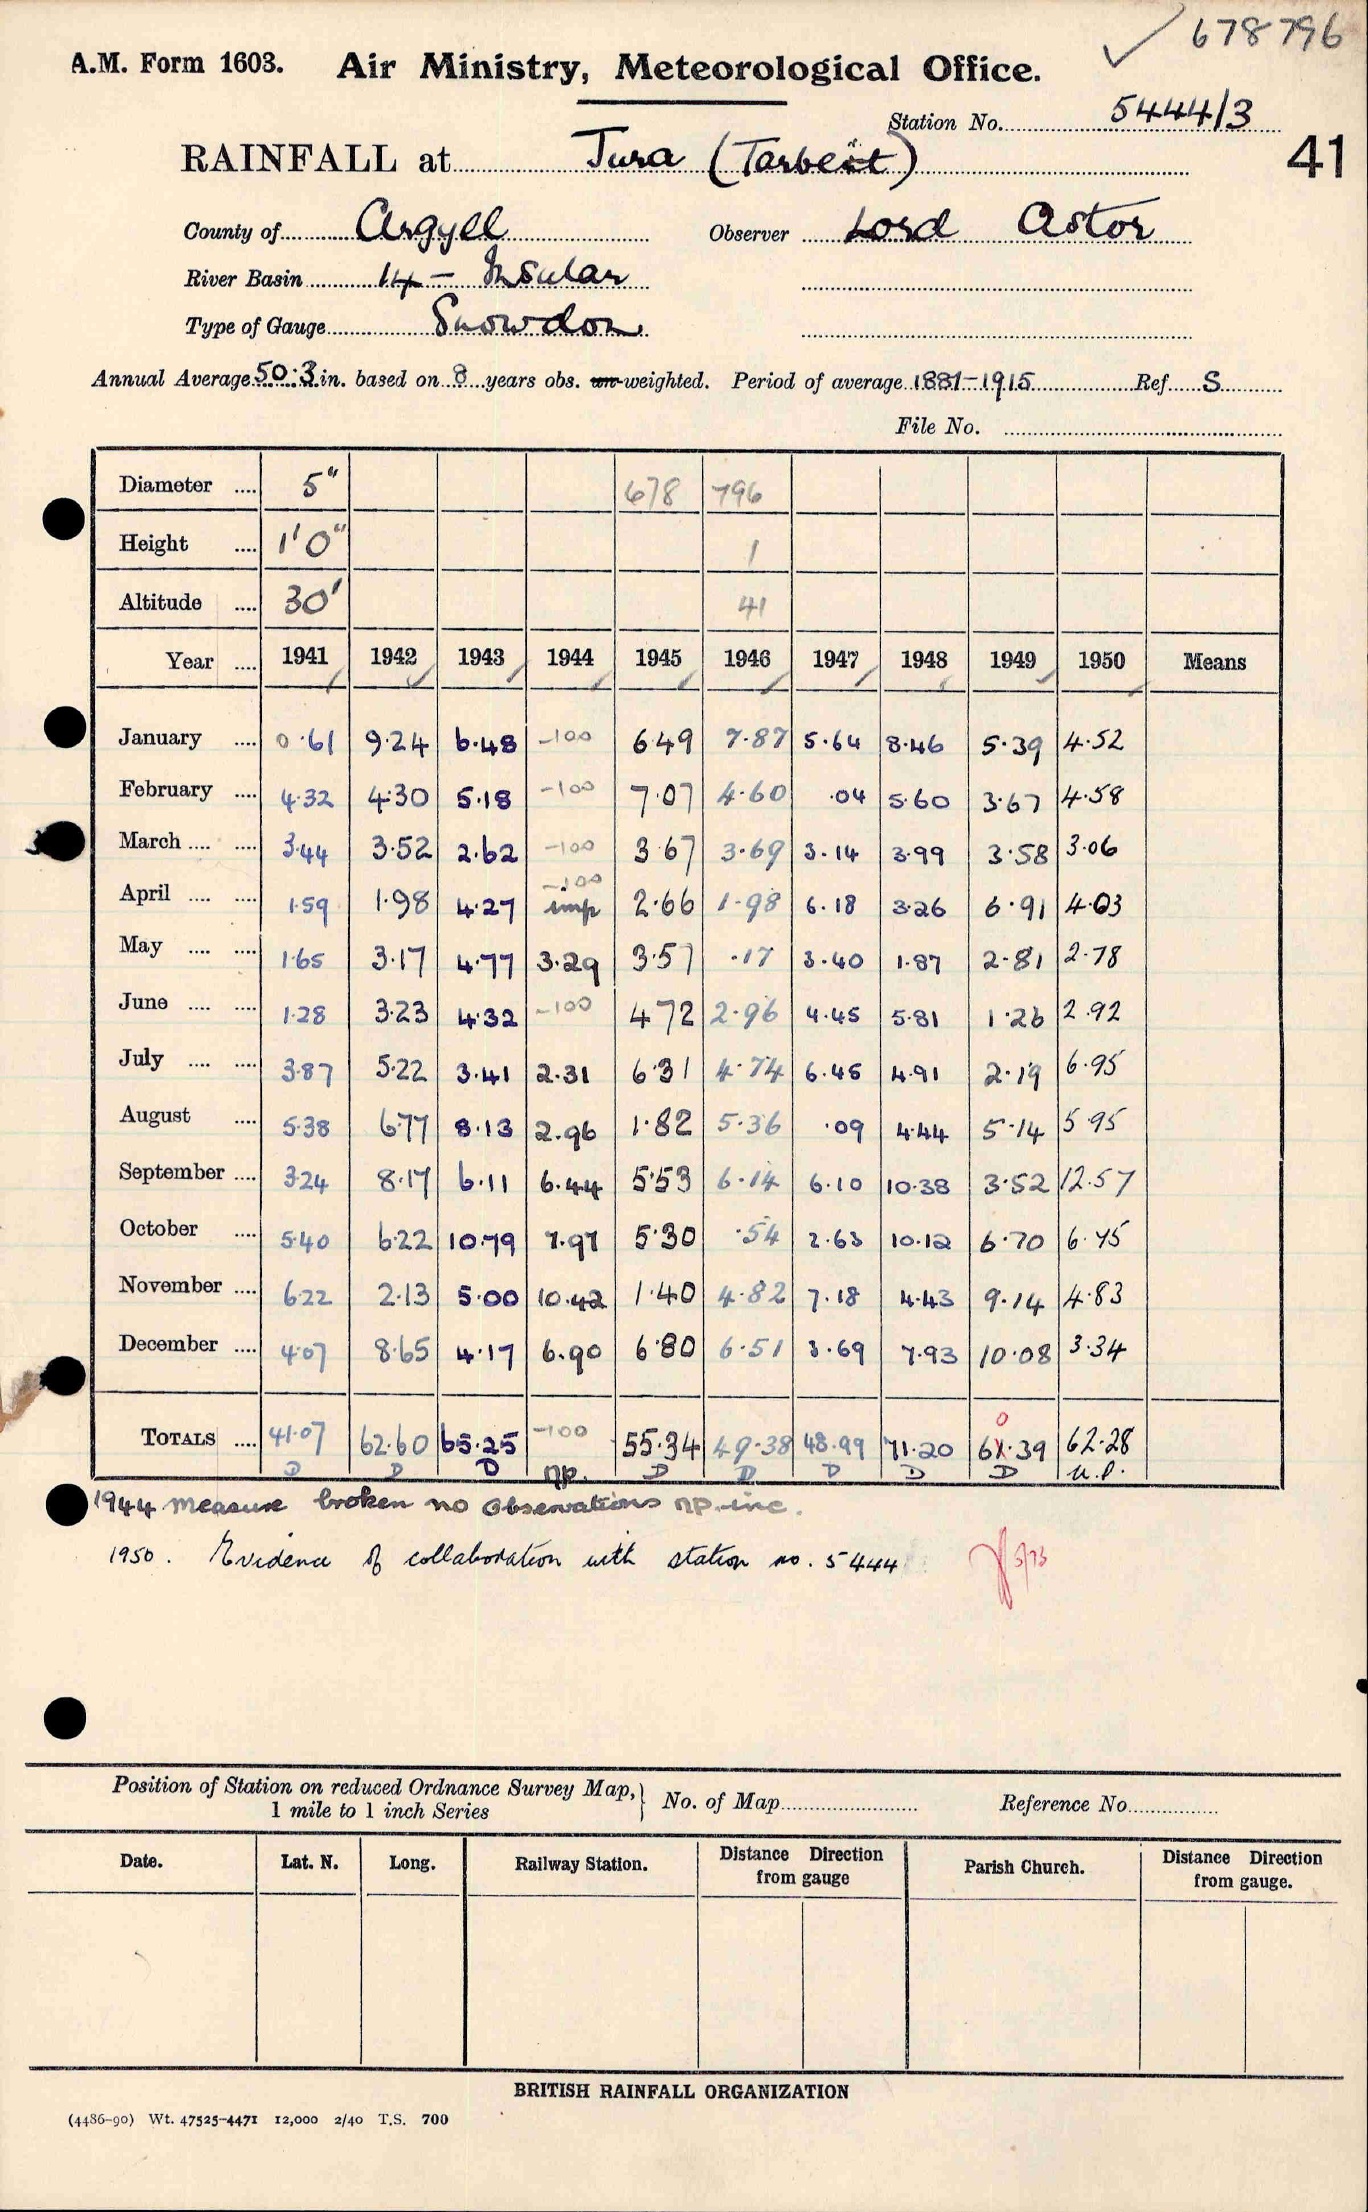 678796
A.M. Form 1603. Air Ministry, Meteorological Office.
Station No. 5444/3
RAINFALL at Jura (Tarbert) 41
County of Argyll Observer Lord Astor
River Basin 14 - Insular
Type of Gauge Snowdon
Annual Average 50.3 in. based on 8 years obs. un-weighted. Period of average 1881-1915 Ref S
File No.
Diameter .... 5" 678 796
Height .... 1'0" 1
Altitude .... 30' 41
Year .... 1941 1942 1943 1944 1945 1946 1947 1948 1949 1950 Means
January .... 0.61 9.24 6.48 -100 6.49 7.87 5.64 8.46 5.39 4.52
February .... 4.32 4.30 5.18 -100 7.07 4.60 .04 5.60 3.67 4.58
March .... .... 3.44 3.52 2.62 -100 3.67 3.69 3.14 3.99 3.58 3.06
April .... .... 1.59 1.98 4.27 -100 imp 2.66 1.98 6.18 3.26 6.91 4.03
May .... .... 1.65 3.17 4.77 3.29 3.57 .17 3.40 1.87 2.81 2.78
June .... .... 1.28 3.23 4.32 -100 4.72 2.96 4.45 5.81 1.26 2.92
July .... .... 3.87 5.22 3.41 2.31 6.31 4.74 6.45 4.91 2.19 6.95
August .... 5.38 6.77 8.13 2.96 1.82 5.36 .09 4.44 5.14 5.95
September .... 3.24 8.17 6.11 6.44 5.53 6.14 6.10 10.38 3.52 12.57
October .... 5.40 6.22 10.79 7.97 5.30 .54 2.63 10.12 6.70 6.75
November .... 6.22 2.13 5.00 10.42 1.40 4.82 7.18 4.43 9.14 4.83
December .... 4.07 8.65 4.17 6.90 6.80 6.51 3.69 7.93 10.08 3.34
0
TOTALS .... 41.07 62.60 65.25 -100 55.34 49.38 48.99 71.20 61.39 62.28
D D D np. D D D D D u.p.
1944 Measure broken no observations np. inc.
1950. Evidence of collaboration with station no. 5444
5/73
Position of Station on reduced Ordnance Survey Map, 1 mile to 1 inch Series } No. of Map Reference No.
Date. Lat. N. Long. Railway Station. Distance from gauge Direction Parish Church. Distance from gauge. Direction
BRITISH RAINFALL ORGANIZATION
(4486-90) Wt. 47525-4471 12,000 2/40 T.S. 700